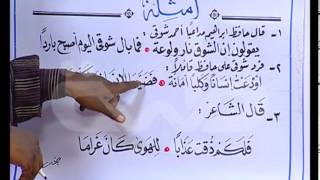 أمثلة
١- قال حافظ إبراهيم مداعبا أحمد شوقي :
يقولون إن الشوق نار ولوعة * فما بال شوقي اليوم أصبح باردا
٢- فرد شوقي على حافظ قائلا :
أودعت إنسانا وكلبا أمانة * فضيعها الإنسان
٣- قال الشاعر :
فلكم ذقت عذابا * للهوى كان غراما